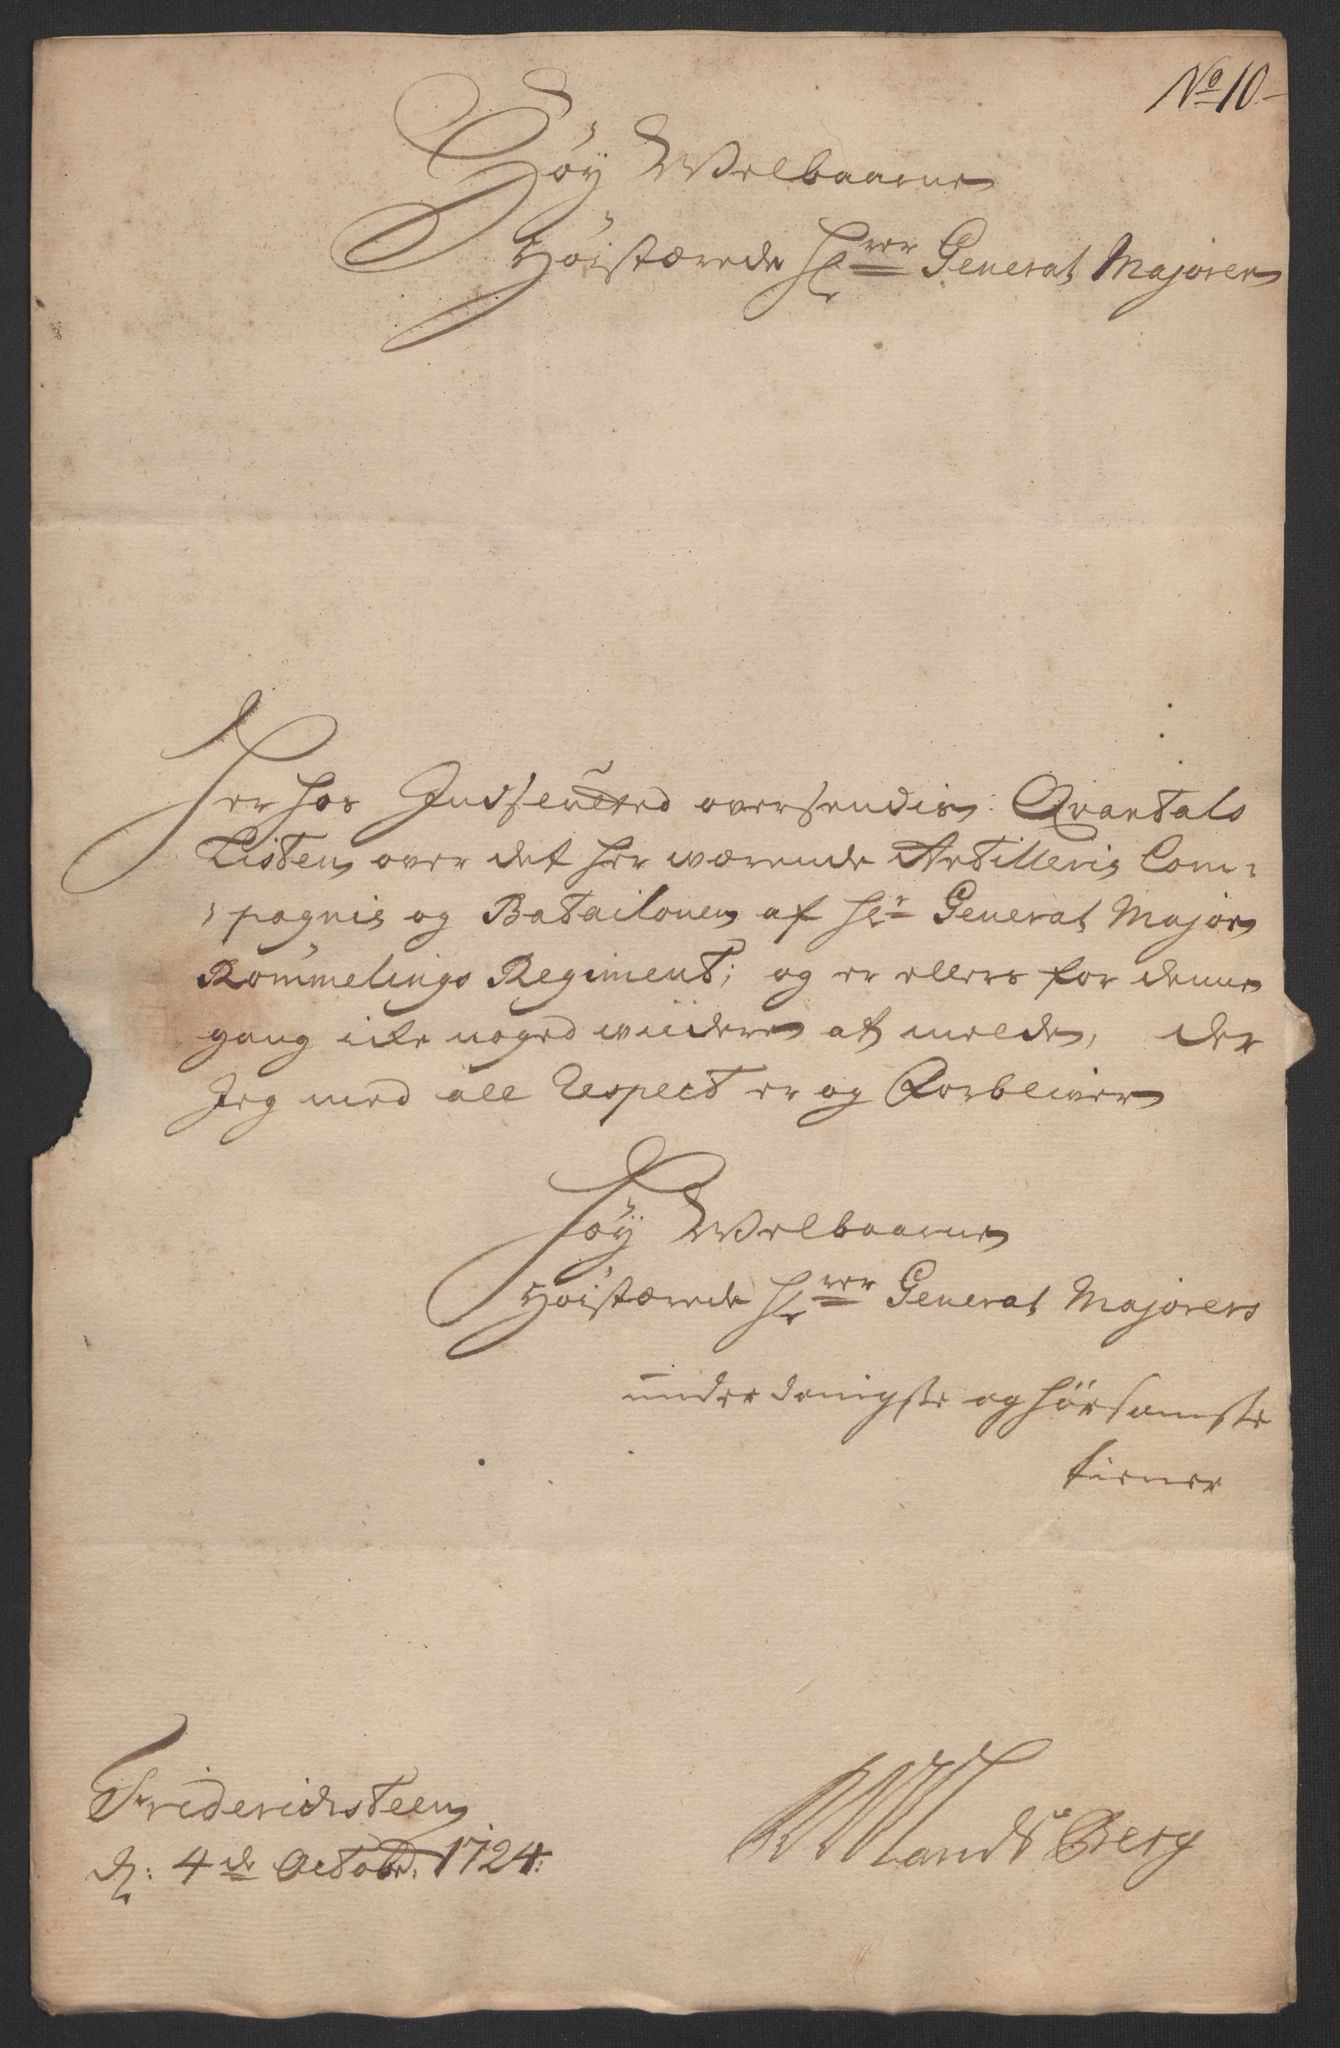 No 10
Høy Welbaarne
Høistærede Hrer General Majoren
Her hos Indsluted oversendis Qvartals
Listen over det her wærende Artilleris Com=
pagnie og Batailonen af Hr General Major
Rømmelings Regiment; og er ellers for denne
gang icke noged wiidere at melde, der
Jeg med all Respect er og Forbliver
Høy Welbaarne
Høistærede Hrer General Majorers
underdanigste og hørsamste
tiener
Friderichsteen
d: 4de Octobr: 1724:
Landsberg